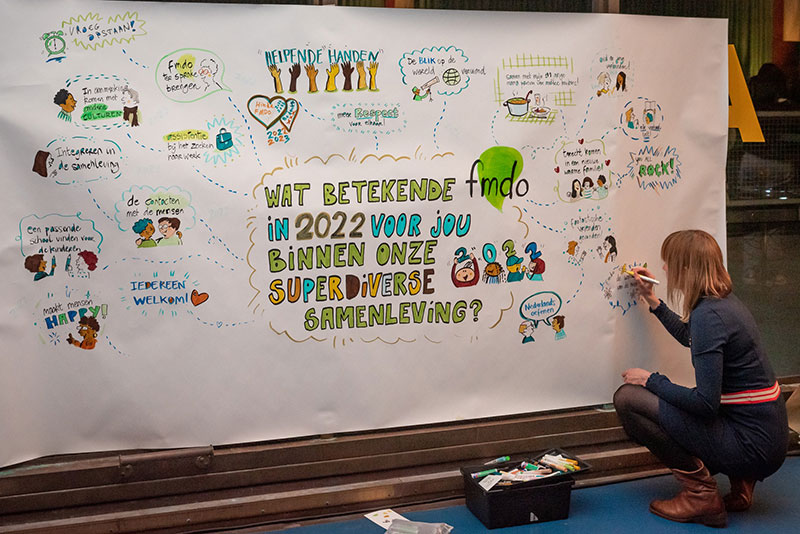 VROEG
OPSTAAN!
fmdo
ter sprake
brengen
In aanraking
komen met
andere
CULTUREN
Integreren in
de samenleving
assistentie
bij het zoeken
naar werk
de contacten
met de mensen
een passende
school vinden voor
de kinderen
IEDEREEN
WELKOM!
maakt mensen
HAPPY
HELPENDE HANDEN
2022
2023
meer
Respect
voor elkaar!
De BLIK op de
wereld
verruimd
samen met mijn
WAT BETEKENDE fmdo
IN 2022 VOOR JOU
BINNEN ONZE
SUPERDIVERSE
SAMENLEVING?
2022
terecht komen
in een nieuwe
warme familie!
ROCK!
fantastische
vrienden
Nederlands
oefenen